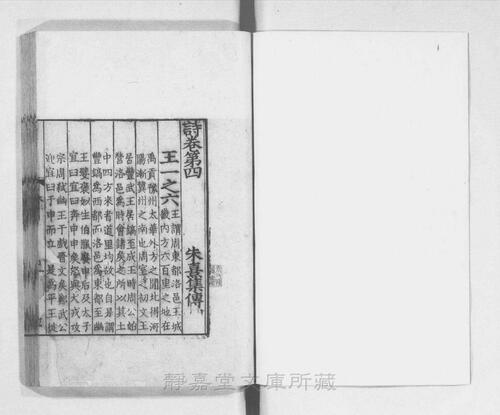 詩卷第四
朱熹集傳
王一之六
王謂周東都洛邑王城
畿内方六百里之地在
禹貢豫州太華外方之間北得河
陽漸冀州之南也周室之初文王
居豐武王居鎬至成王時周公始
營洛邑爲時會諸侯之所以其土
中四方來者道里均故也自是謂
豐鎬爲西都而洛邑爲東都至幽
王嬖襃姒生伯服廢申后及太子
宜臼宜臼奔申申侯怒與犬戎攻
宗周弑幽王于戲晉文侯鄭武公
迎宜臼于申而立之是爲平王徙
靜嘉堂文庫所藏